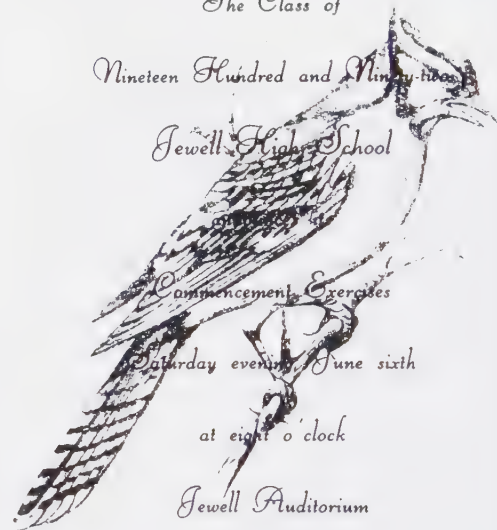 The Class of
Nineteen Hundred and Ninety-two
Jewell High School
Commencement Exercises
Saturday evening, June sixth
at eight o'clock
Jewell Auditorium